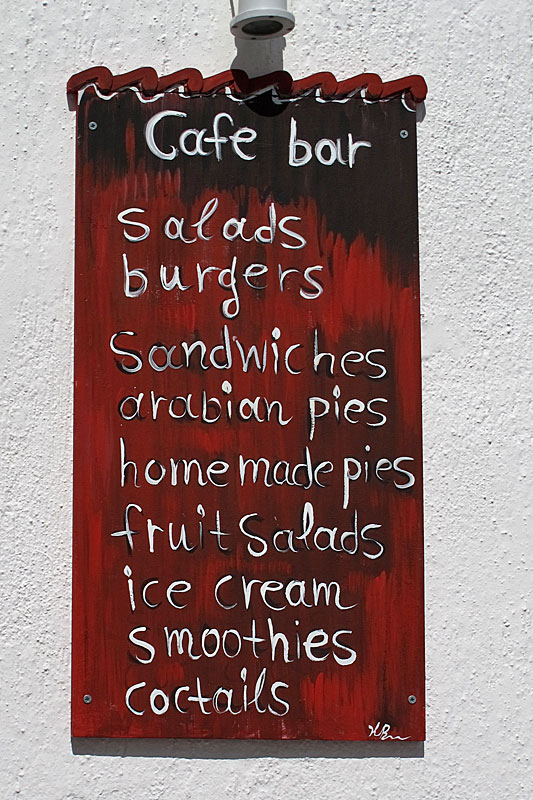 Cafe bar
Salads
burgers
Sandwiches
arabian pies
home made pies
fruit Salads
ice cream
smoothies
coctails